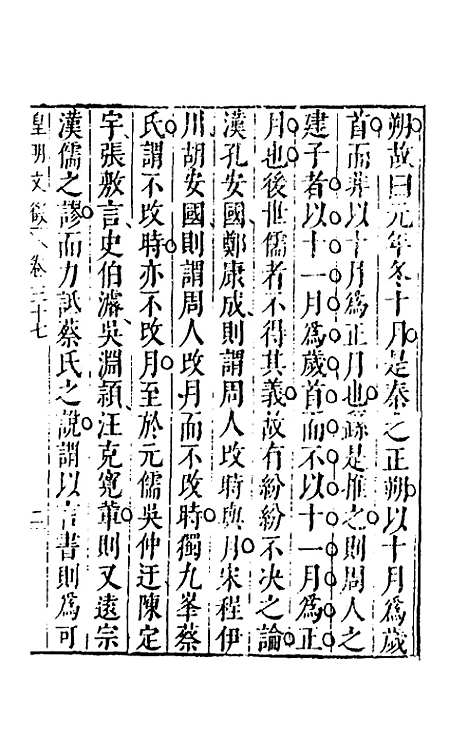 朔故曰元年冬十月是秦之正朔以十月爲歲
首而非以十月爲正月也繇是推之則周人之
建子者以十一月爲歲首而不以十一月爲正
月也後世儒者不得其義故有紛紛不決之論
漢孔安國鄭康成則謂周人改時與月宋程伊
川胡安國則謂周人改月而不改時獨九峯蔡
氏謂不改時亦不改月至於元儒吳仲迂陳定
宇張敷言史伯濬吳淵穎汪克寬輩則又遠宗
漢儒之謬而力詆蔡氏之說謂以言書則爲可
皇明文 卷三十七 二